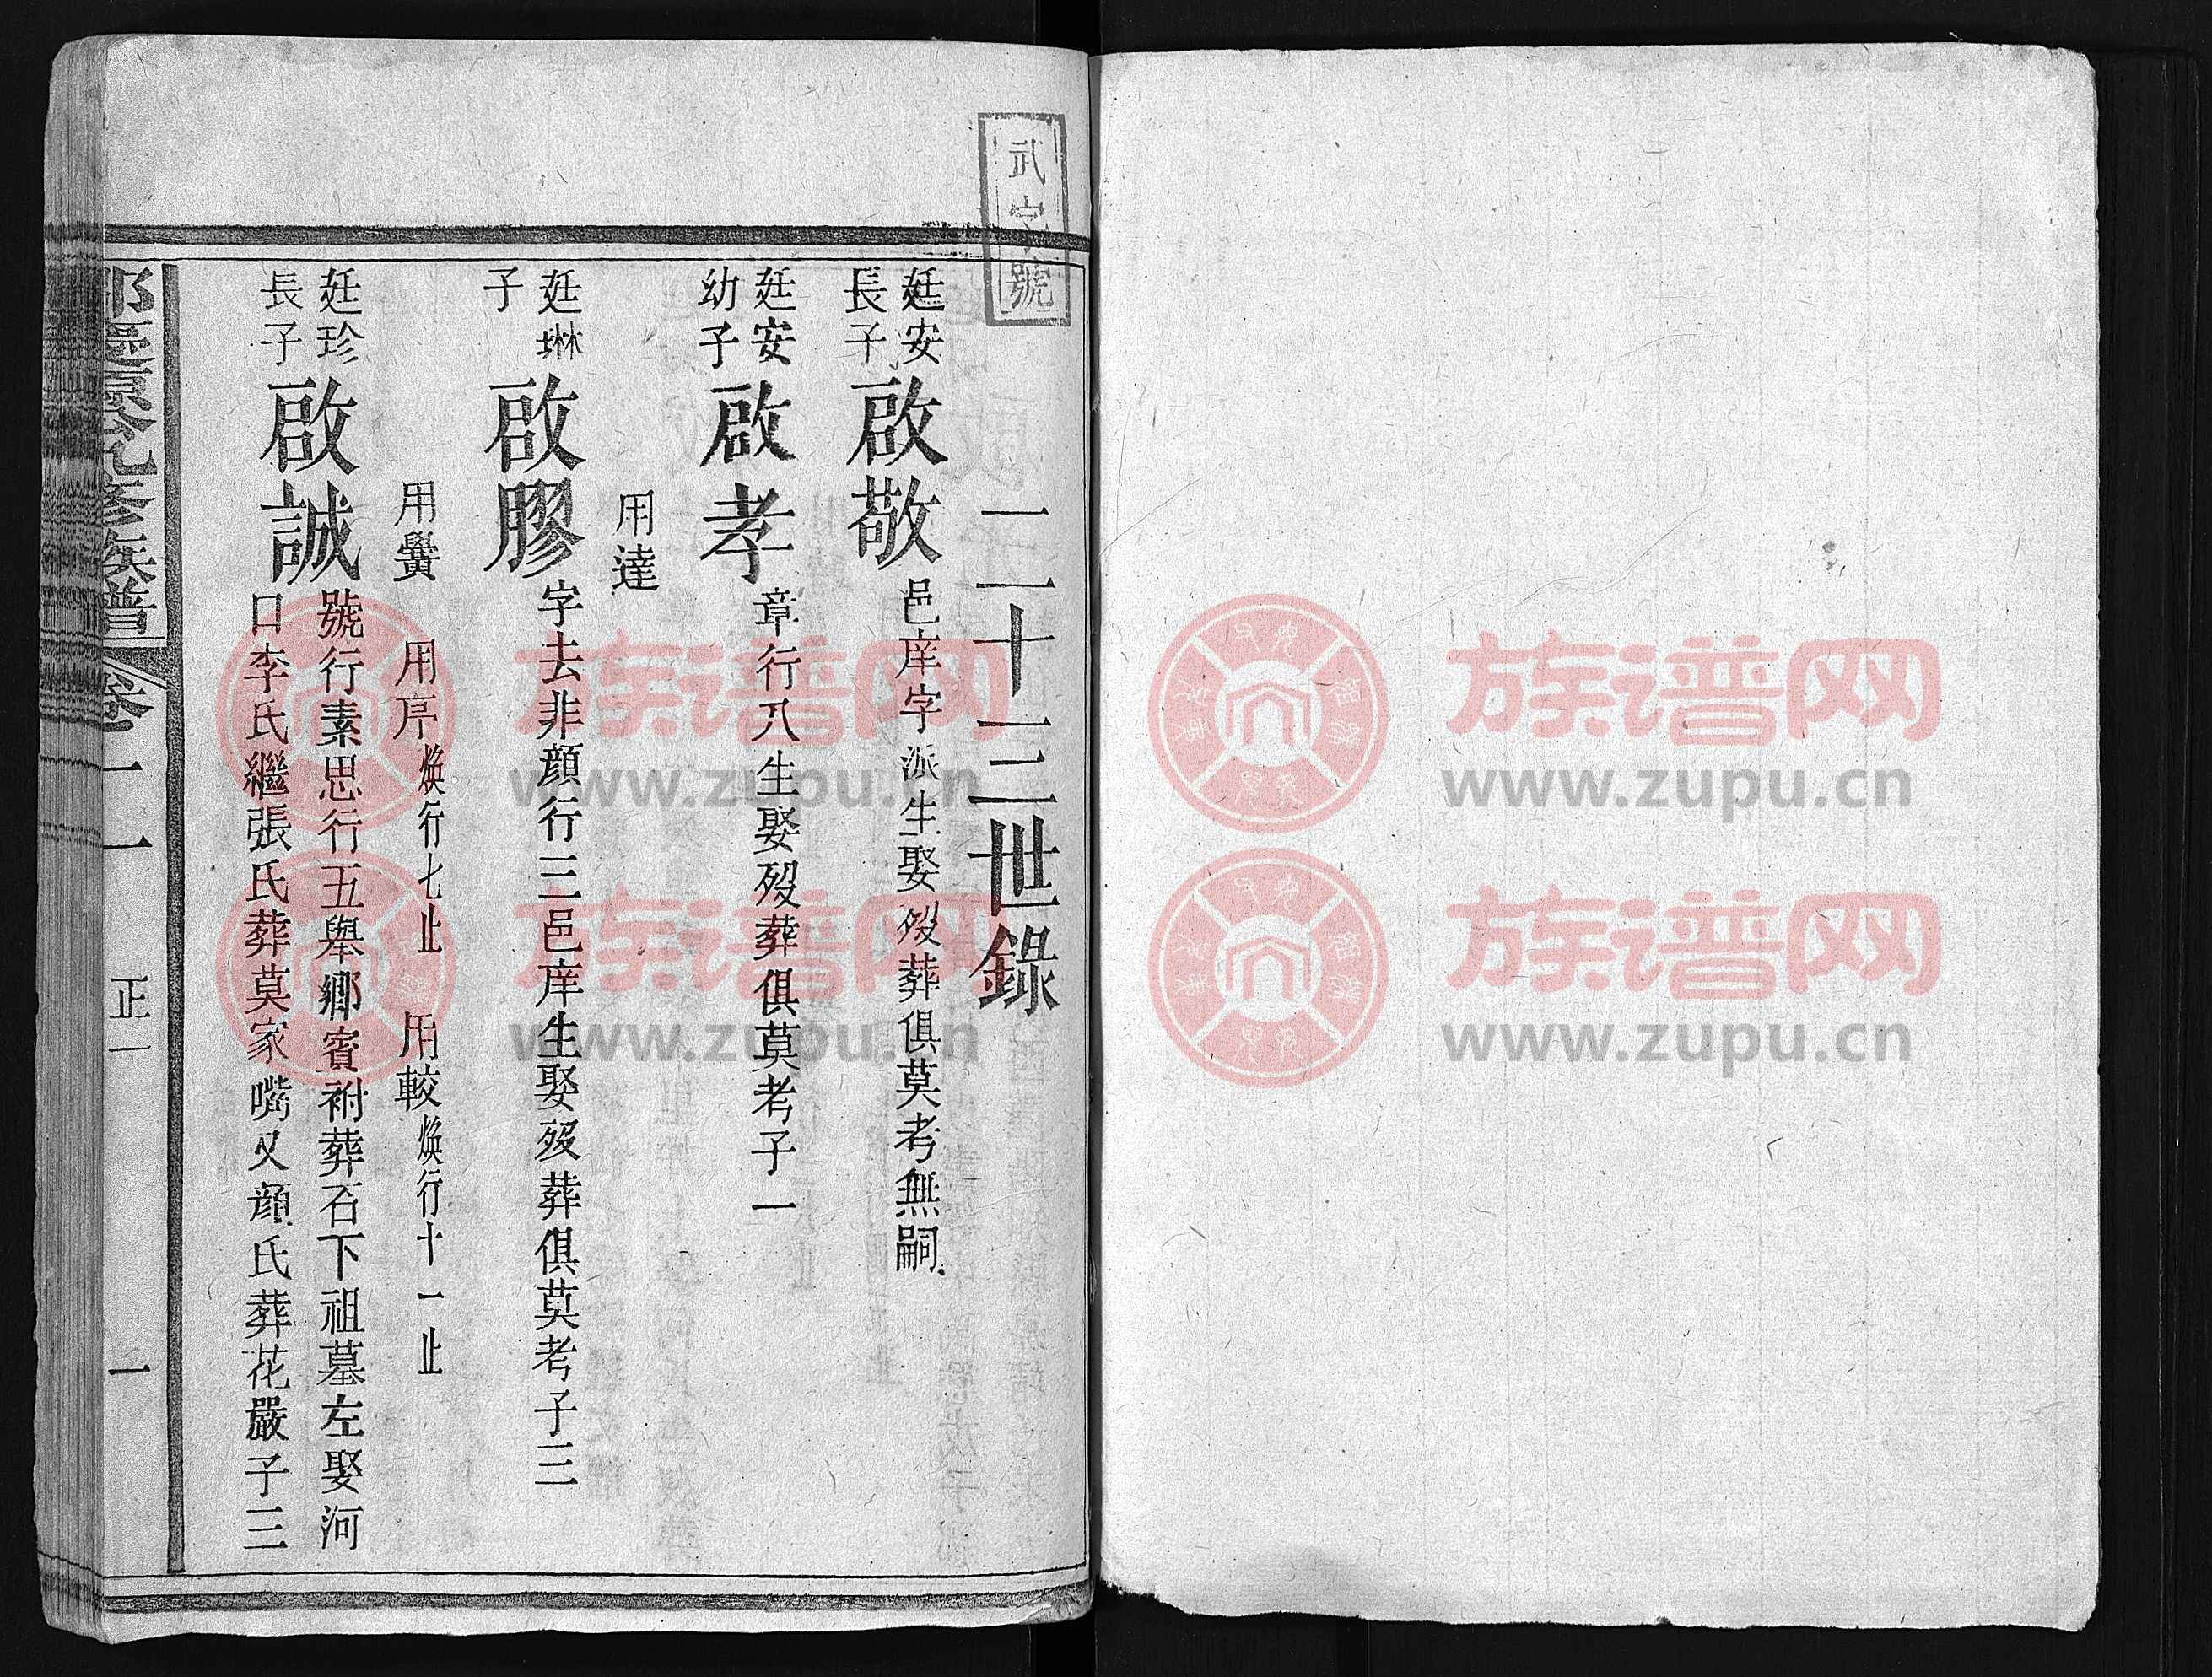 武字號
二十三世錄
廷安
長子
啟敬
邑庠字派生娶歿葬俱莫考無嗣
廷安
幼子
啟孝
章行八生娶歿葬俱莫考子一
用達
廷琳
子
啟膠
字去非顔行三邑庠生娶歿葬俱莫考子三
用黌 用序煥行七止 用較煥行十一止
廷珍
長子
啟誠
號行素思行五舉鄉賓祔葬石下祖墓左娶河
口李氏繼張氏葬莫家嘴又顔氏葬花嚴子三
修族譜
卷二
正一
一
族谱网
www.zupu.cn
族谱网
www.zupu.cn
族谱网
www.zupu.cn
族谱网
www.zupu.cn